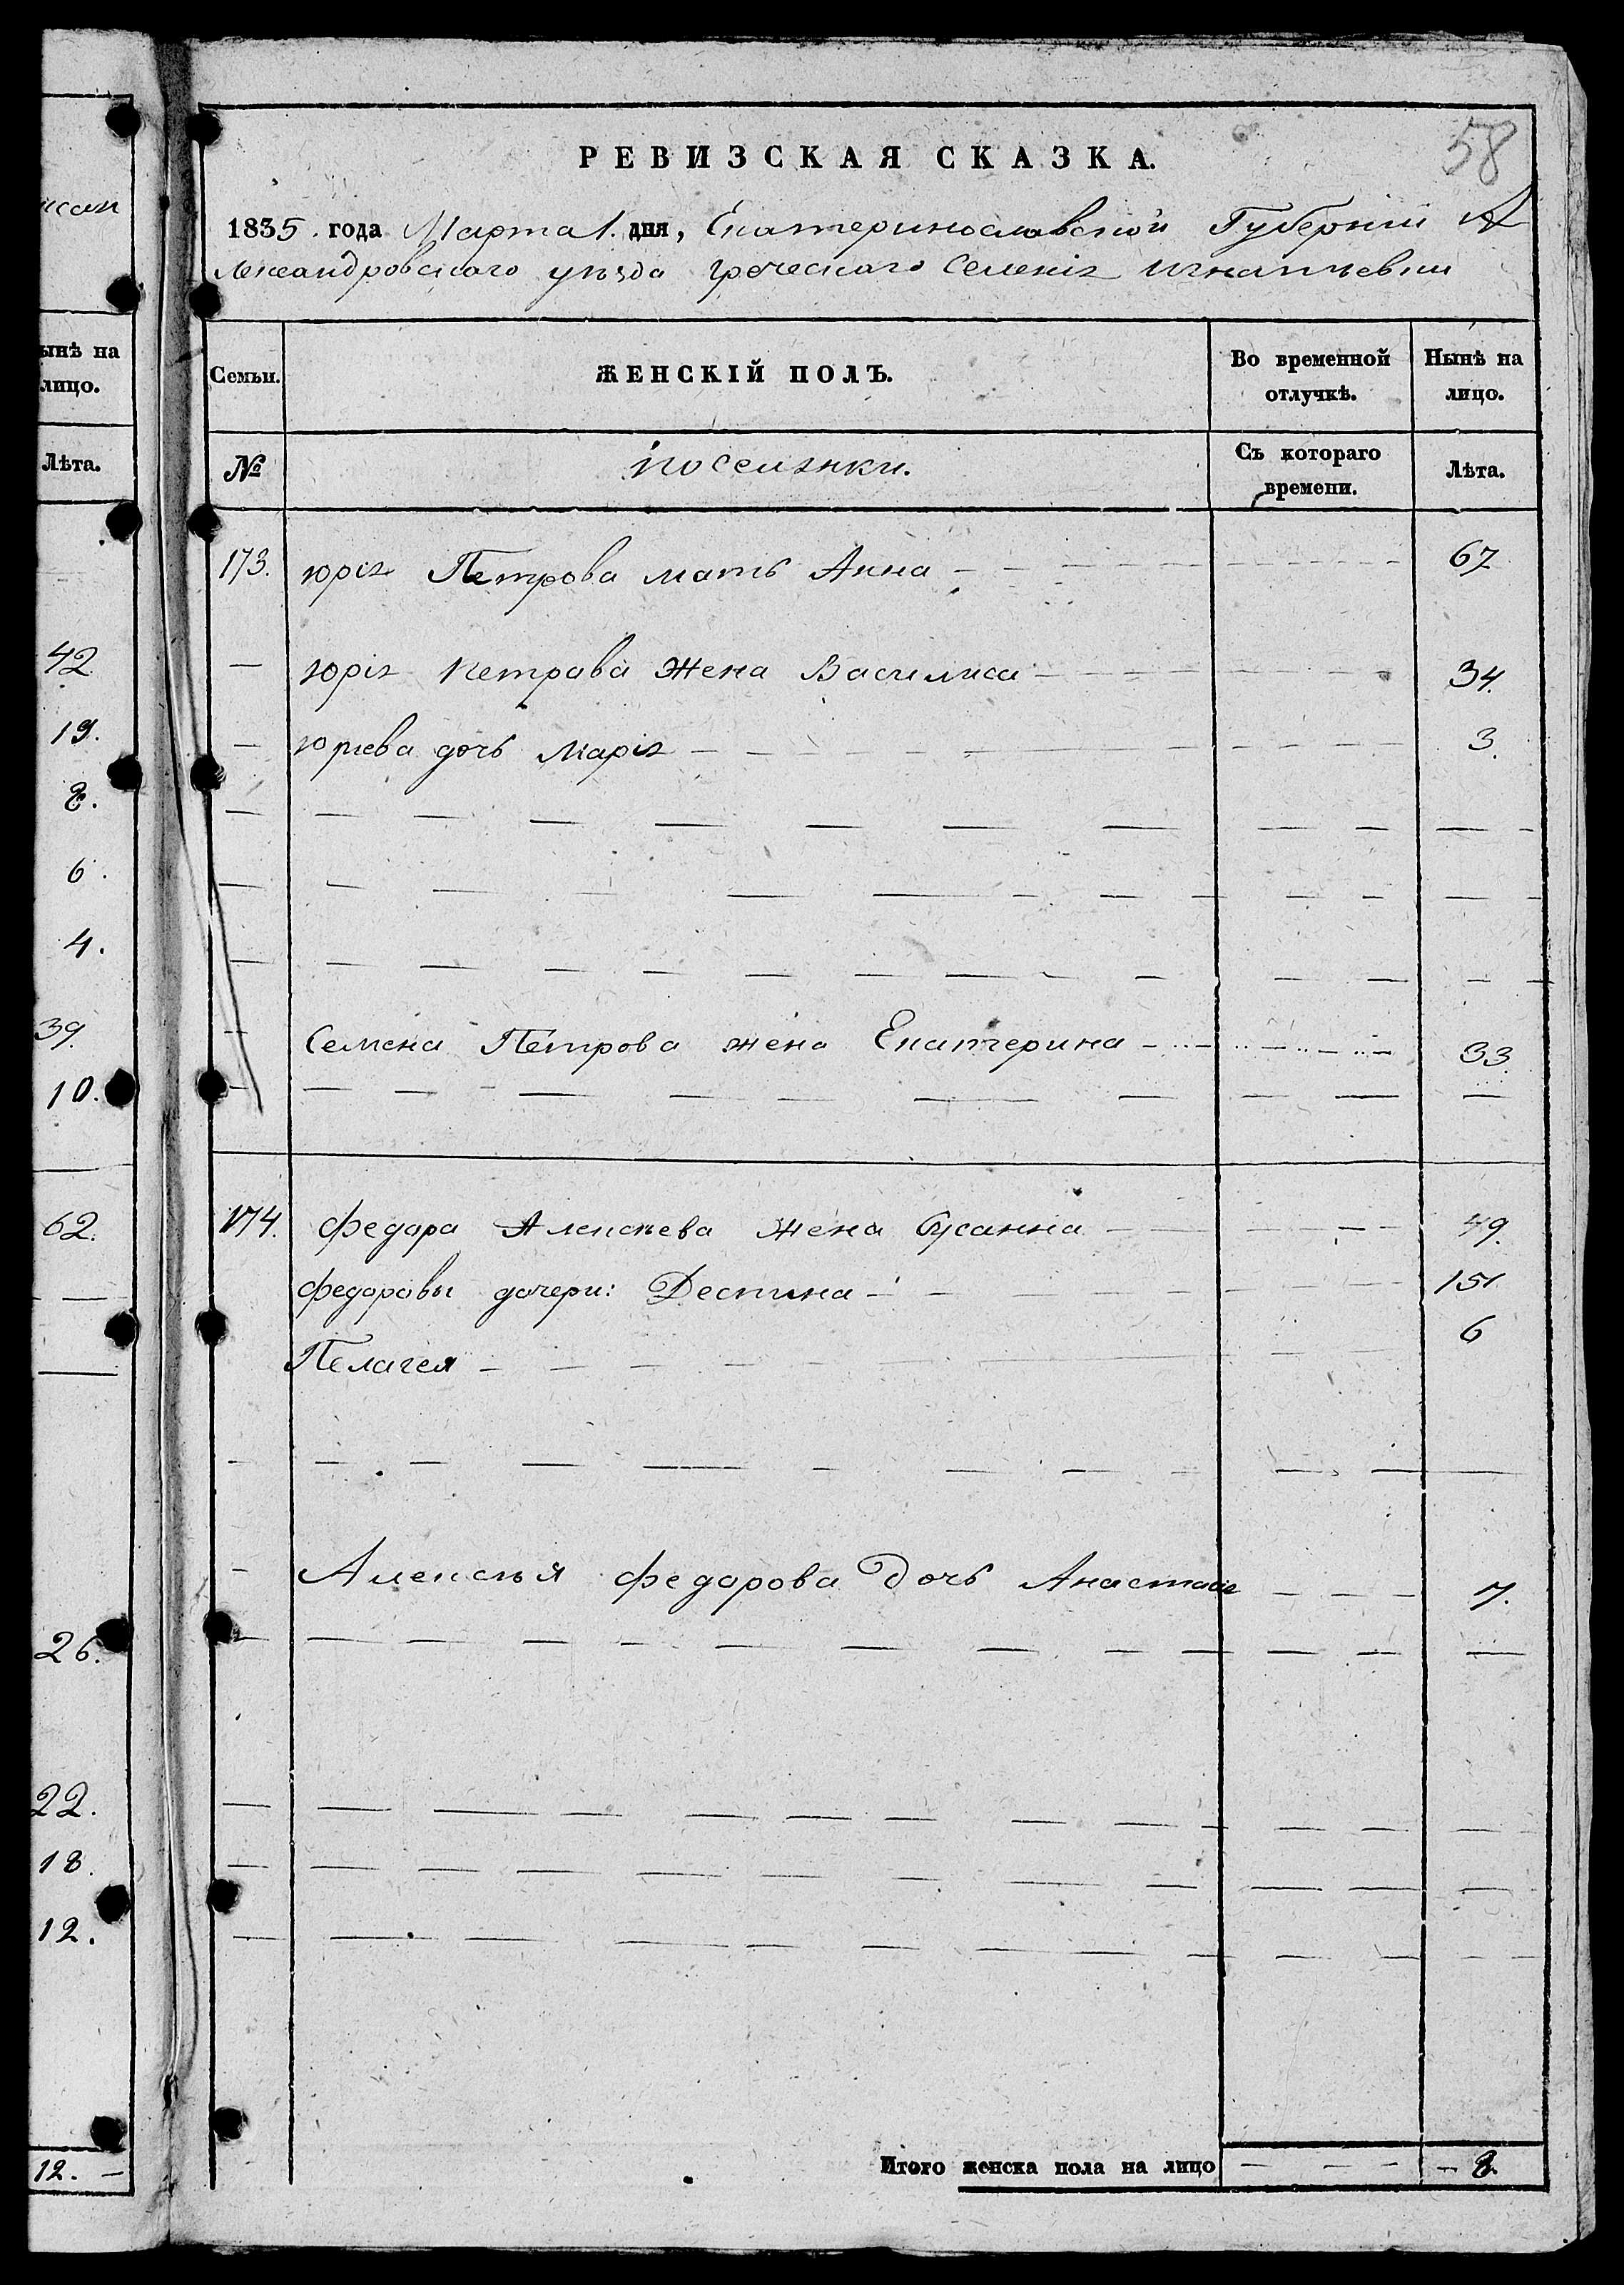 исан
ынѣ на
лицо.
Лѣта.
42
19.
8.
6.
4.
39.
10.
62.
26.
22.
18.
12.
12. —
58
РЕВИЗСКАЯ СКАЗКА.
1835. года Марта 1. дня, Екатеринославской Губерніи А
лександровскаго уѣзда греческаго Селенія Игнатьевки
Семьи. ЖЕНСКІЙ ПОЛЪ. Во временной отлучкѣ. Нынѣ на лицо.
№ поселянки. Съ котораго времени. Лѣта.
173. юрія Петрова мать Анна 67
— юрія Петрава Жена Василиса 34.
— юриева дочь Марія 3.
— Семена Петрова жена Екатерина 33.
174. Федара Алексѣева Жена Сусанна 49.
Федоровы дочери: Деспина 15
Пелагея 6
— Алексѣя Федорова Дочь Анастасія 7.
Итого женска пола на лицо — — — — 8.